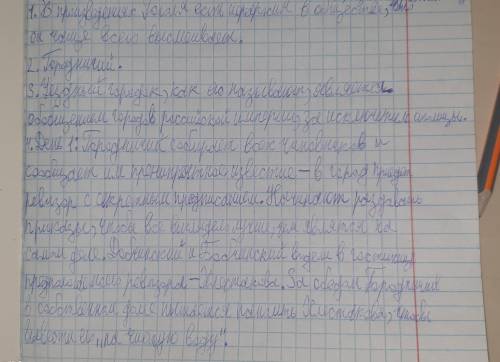 1. В произведениях Гоголя есть пороки в обществе, что
он чаще всего высмеивает.
2. Городничий.
3. Уездный городок, как его называют, является
обобщением городов российской империи, за исключением столицы.
4. День 1: Городничий собирает всех чиновников и
сообщает им пренеприятное известие – в город приедет
ревизор с секретным предписанием. Начинают раздавать
приказы, чтобы всё выглядело лучше, чем является на
самом деле. Добчинский и Бобчинский видели в гостинице
предполагаемого ревизора – Хлестакова. За обедом Городничий
в собственном доме пытается Хлестакова, чтобы
вывести его „на чистую воду".